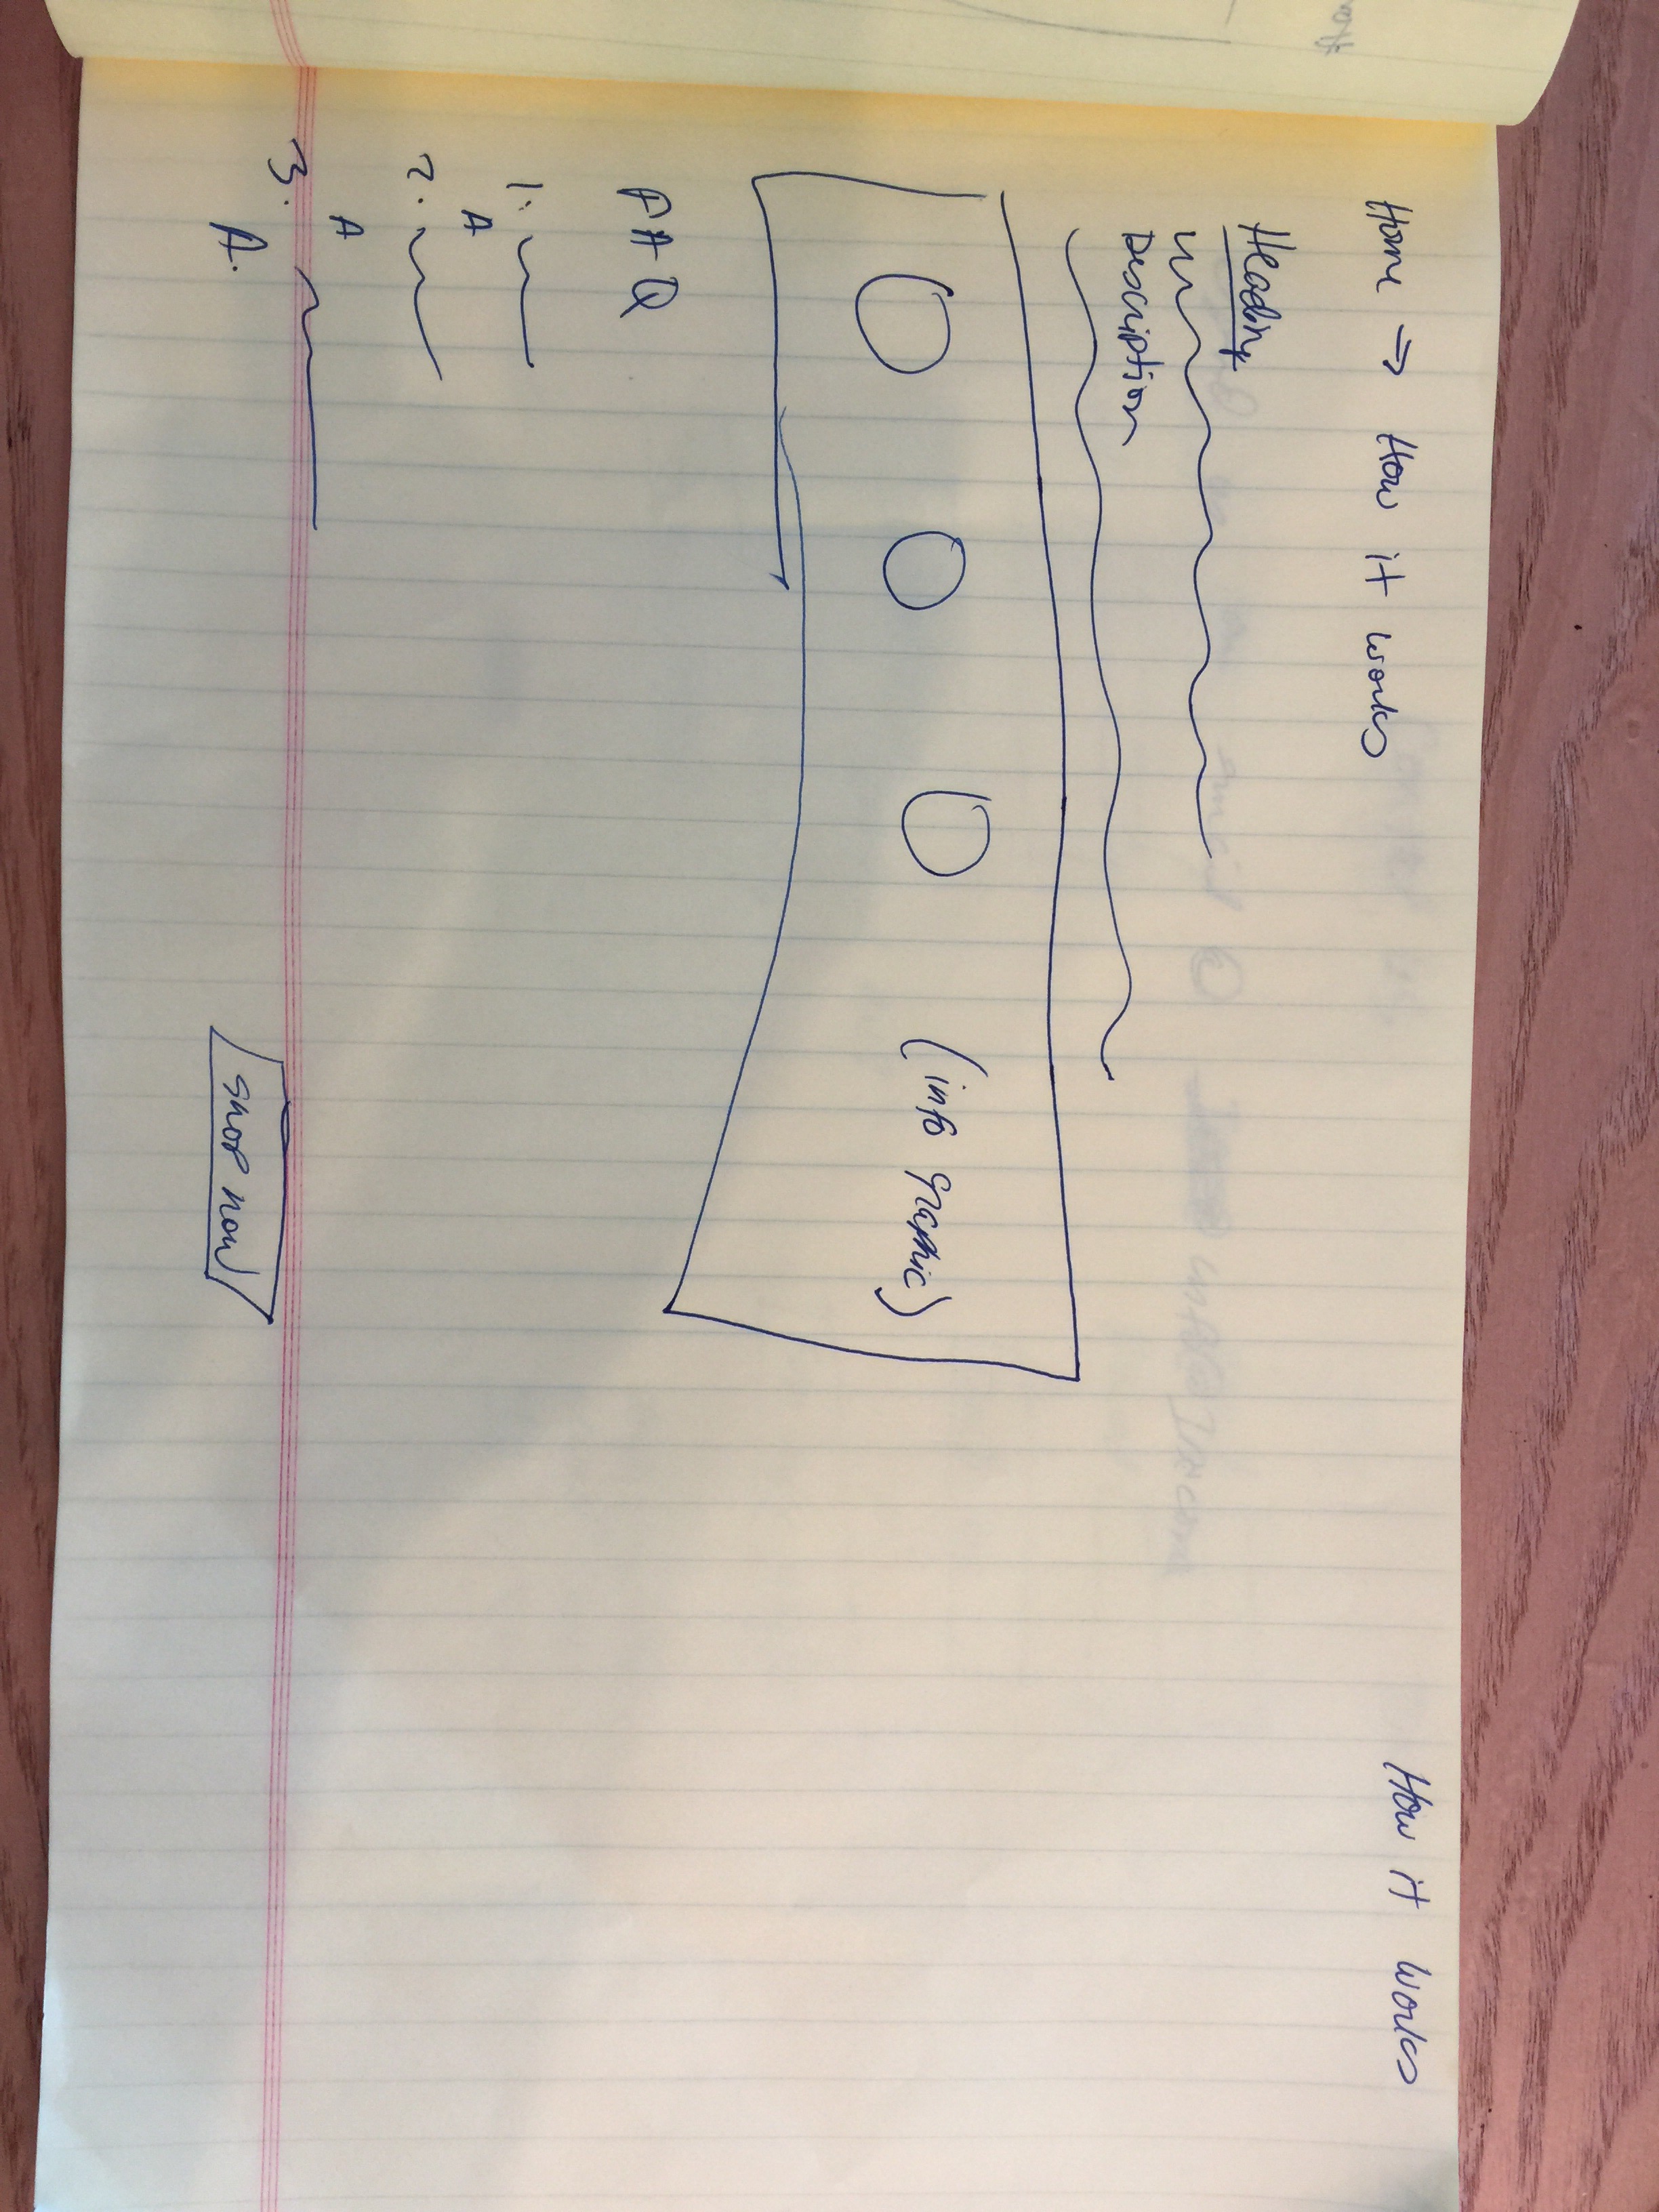 Home → How it works
How it works
Heading
Description
(info graphic)
FAQ
1.
A
2.
A
3.
A.
SHOP NOW